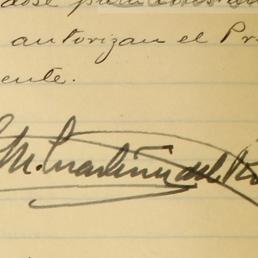 dose para
autorizan el Pr
ente.
M. Martinez del Ro